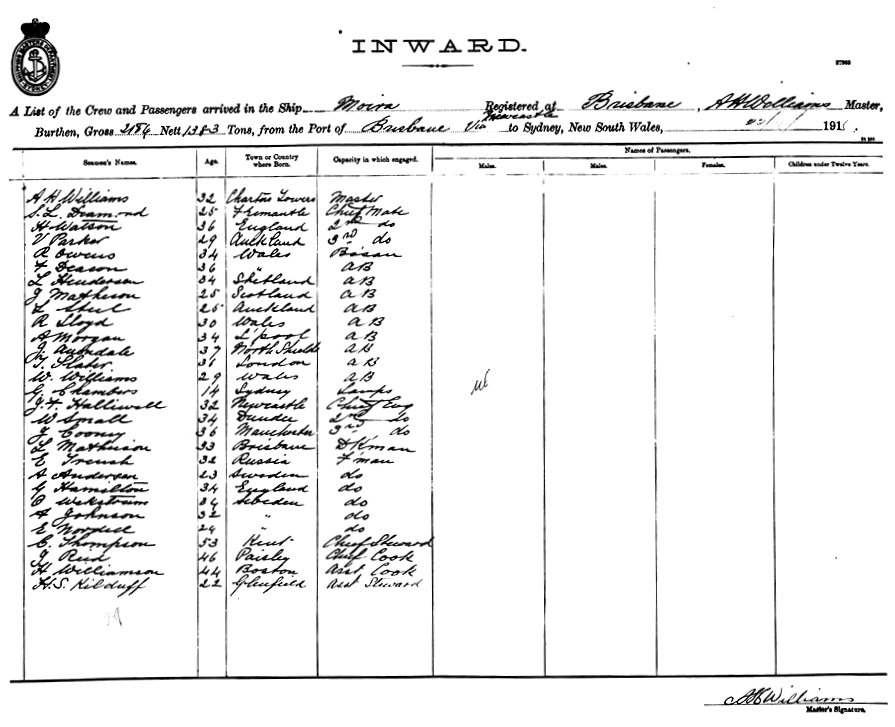 INWARD.
A List of the Crew and Passengers arrived in the Ship Moira Registered at Brisbane, A H Williams Master,
Burthen, Gross 2184 Nett 1383 Tons, from the Port of Brisbane Via Newcastle to Sydney, New South Wales, 191
Names of Passengers.
Seamen's Names. Age. Town or Country where Born. Capacity in which engaged. Males. Males. Females. Children under Twelve Years.
A H Williams 32 Charters Towers Master
S. L. Diamond 25 Fremantle Chief Mate
H Watson 36 England 2nd do
V Parker 29 Auckland 3rd do
R Owens 34 Wales Bosan
F Deacon 36 " AB
L Henderson 34 Shetland AB
J Matheson 25 Scotland AB
L Steel 25 Auckland AB
R Lloyd 30 Wales AB
A Morgan 34 L'pool AB
J Avondale 37 North Shields AB
T. Slater 36 London AB
W. Williams 29 Wales AB
G. Chambers 14 Sydney Lamps
J. F. Halliwell 32 Newcastle Chief Eng
W Small 34 Dundee 2nd do
J Cooney 36 Manchester 3rd do
L Mathieson 33 Brisbane DKman
E French 32 Russia F'man
A Andersen 23 Sweden do
G Hamilton 34 England do
O 34 Sweden do
A Johnson 32 " do
E Nordell 24 " do
C. Thompson 53 Kent Chief Steward
J Reid 46 Paisley Chief Cook
H Williamson 44 Boston Asst Cook
H. S. Kilduff 22 Glenfield Asst Steward
A H Williams
Master's Signature.